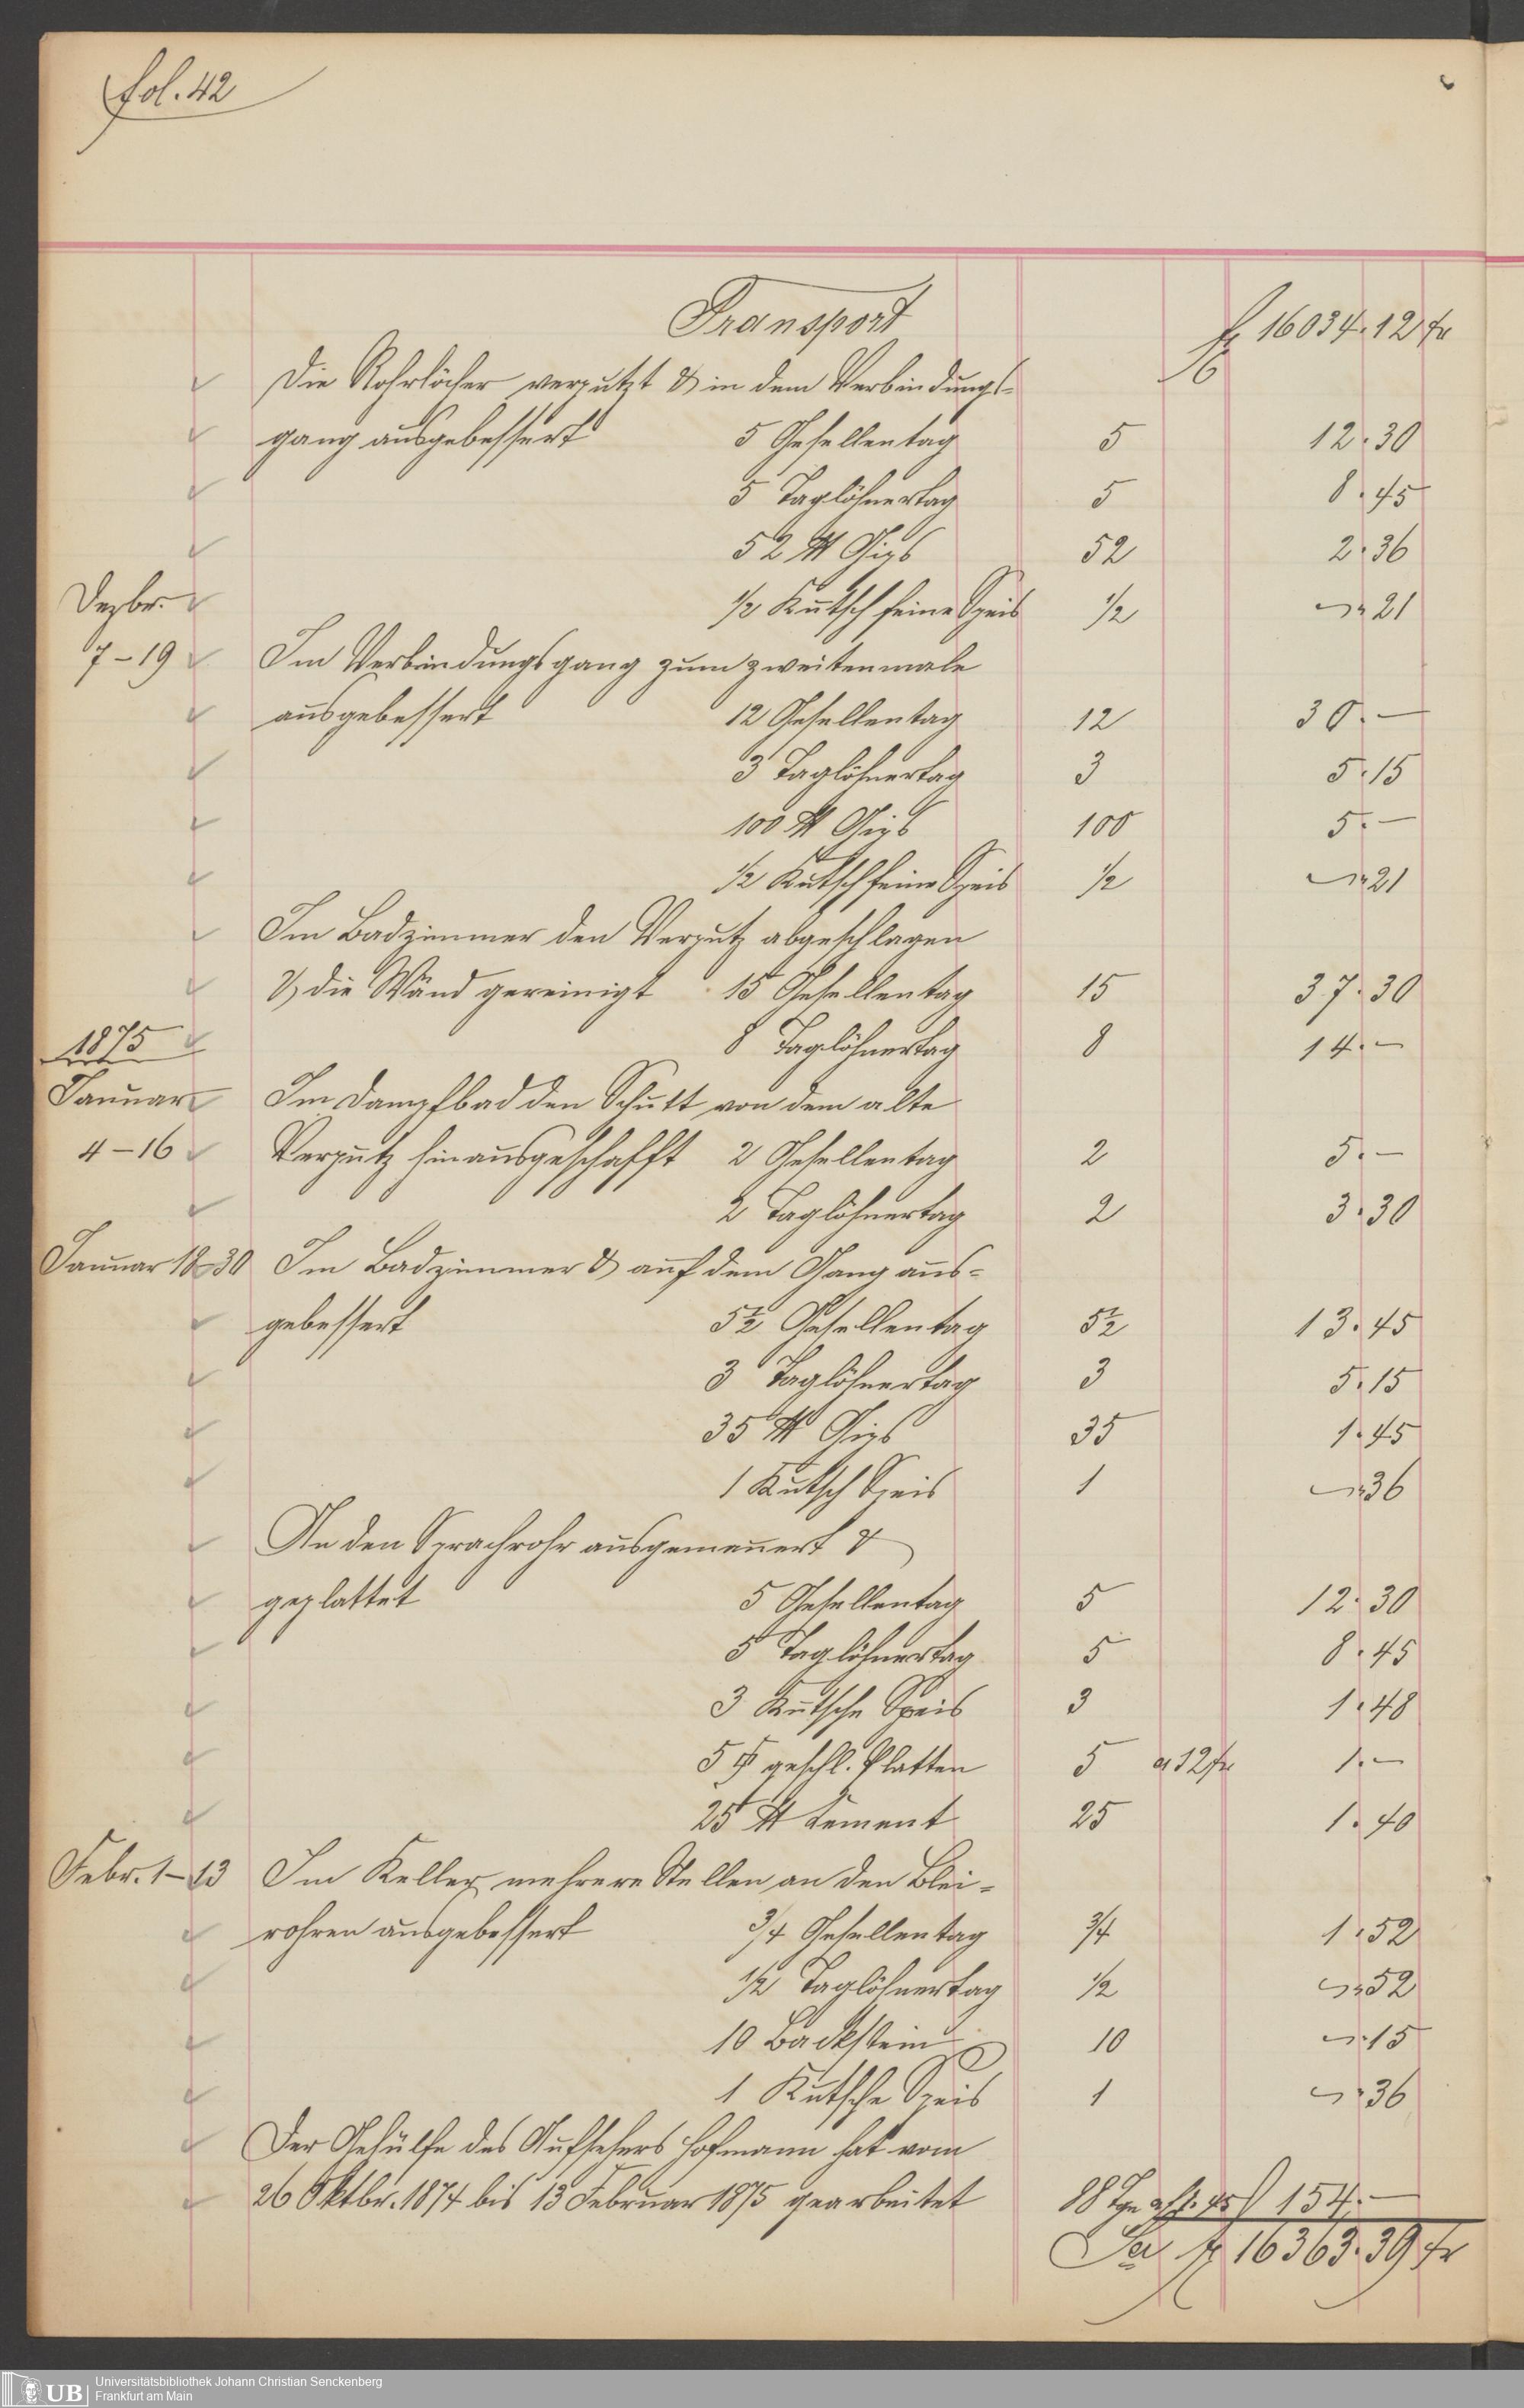 fol. 42
Transport fl 16034. 12 kr
Die Rohrlöcher verputzt & in dem Verbindungs-
gang ausgebessert 5 Gesellentag 5 12. 30
5 Taglöhnertag 5 8. 45
52 ℔ Gips 52 2. 36
Dezbr. ½ Kutsch feine Speis ½ " 21
7-19 Im Verbindungsgang zum zweitenmale
ausgebessert 12 Gesellentag 12 30. —
3 Taglöhnertag 3 5. 15
100 ℔ Gips 100 5. —
½ Kutsch feine Speis ½ " 21
Im Badzimmer den Verputz abgeschlagen
& die Wänd gereinigt 15 Gesellentag 15 37. 30
1875 8 Taglöhnertag 8 14. —
Januar Im Dampfbad den Schutt von dem alte
4-16 Verputz hinausgeschafft 2 Gesellentag 2 5. —
2 Taglöhnertag 2 3. 30
Januar 18-30 Im Badzimmer & auf dem Gang aus-
gebessert 5½ Gesellentag 5½ 13. 45
3 Taglöhnertag 3 5. 15
35 ℔ Gips 35 1. 45
1 Kutsch Speis 1 " 36
An den Sprachrohr ausgemauert &
geplattet 5 Gesellentag 5 12. 30
5 Taglöhnertag 5 8. 45
3 Kutsche Speis 3 1. 48
5 geschl. Platten 5 a 12 kr 1. —
25 ℔ Cement 25 1. 40
Febr. 1-13 Im Keller mehrere Stellen an den Blei-
rohren ausgebessert ¾ Gesellentag ¾ 1. 52
½ Taglöhnertag ½ " 52
10 Backstein 10 " 15
1 Kutsche Speis 1 " 36
Der Gehülfe des Aufsehers Hofmann hat vom
26 Oktbr. 1874 bis 13 Februar 1875 gearbeitet 88 Tge a fl 1. 45 154. —
Sa fl 16363. 39 kr
UB Universitätsbibliothek Johann Christian Senckenberg
Frankfurt am Main